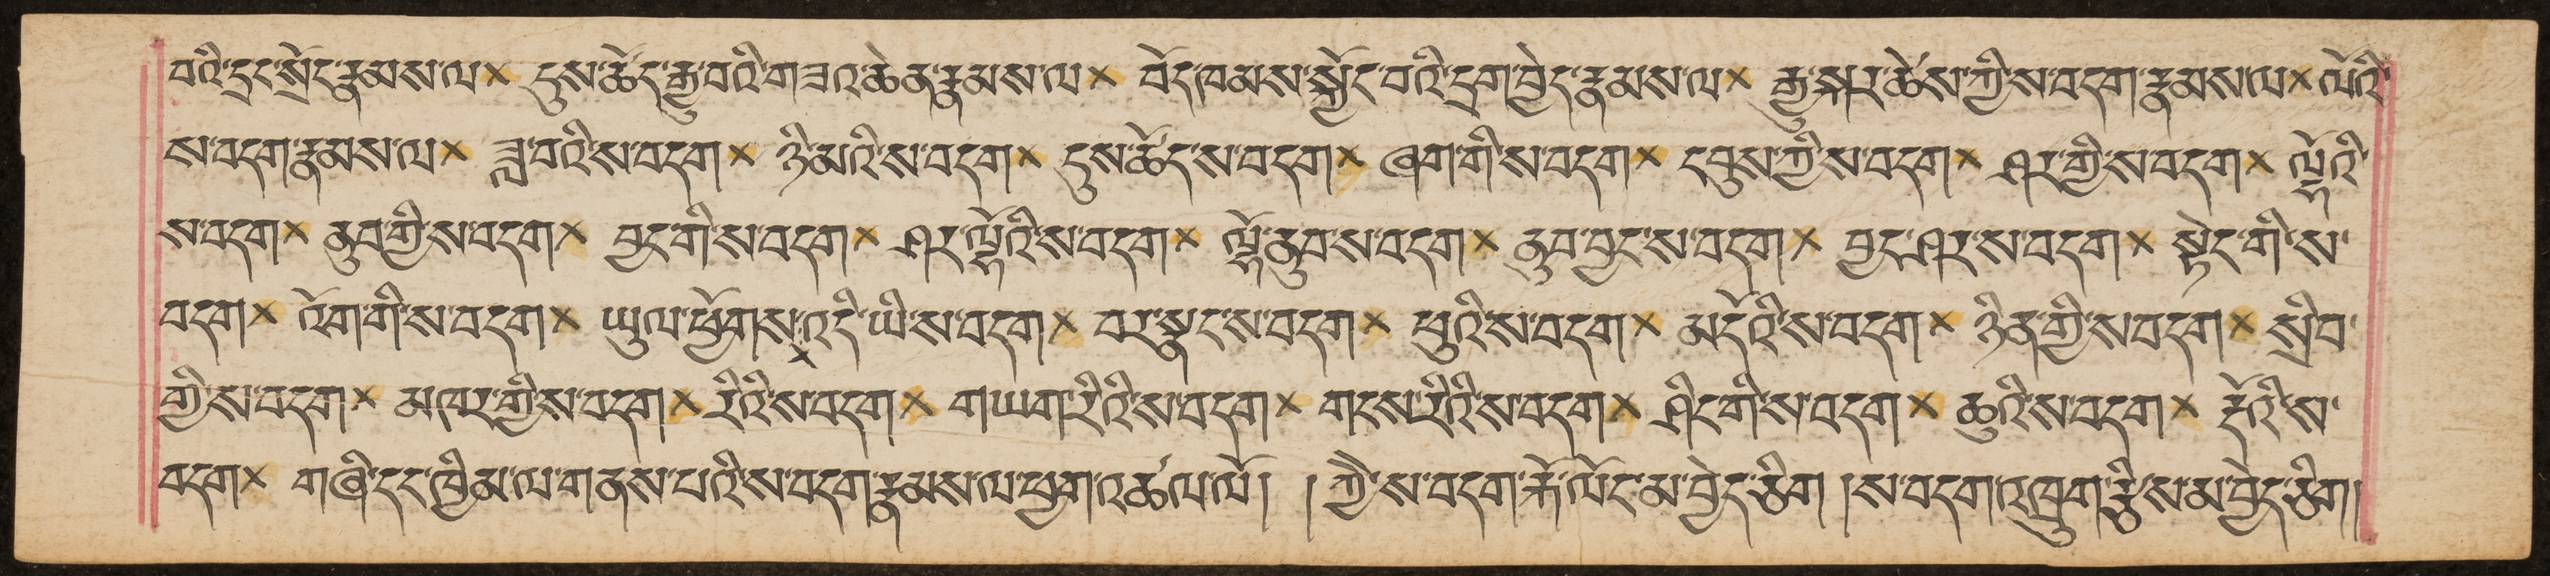 བའི་དྲང་སྲོང་རྣམས་ལ་ × དུས་ཚོད་རྒྱུ་བའི་གཟའ་ཆེན་རྣམས་ལ་ × བོད་ཁམས་སྐྱོང་བའི་དྲག་བྱེད་རྣམས་ལ་ × རྒྱུ་སྐར་ཚེས་ཀྱི་ས་བདག་རྣམས་ལ་ × ལོའི་
ས་བདག་རྣམས་ལ་ × ཟླ་བའི་ས་བདག་ × ཉི་མའི་ས་བདག་ × དུས་ཚོད་ས་བདག་ × ཞག་གི་ས་བདག་ × དབུས་ཀྱི་ས་བདག་ × ཤར་གྱི་ས་བདག་ × ལྷོའི་
ས་བདག་ × ནུབ་ཀྱི་ས་བདག་ × བྱང་གི་ས་བདག་ × ཤར་ལྷོའི་ས་བདག་ × ལྷོ་ནུབ་ས་བདག་ × ནུབ་བྱང་ས་བདག་ × བྱང་ཤར་ས་བདག་ × སྟེང་གི་ས་
བདག་ × འོག་གི་ས་བདག་ × ཡུལ་ཕྱོགས་འདི་ཡི་ས་བདག་ × བར་སྣང་ས་བདག་ × ཕུའི་ས་བདག་ × མདོའི་ས་བདག་ × ཉིན་གྱི་ས་བདག་ × སྲིབ་
ཀྱི་ས་བདག་ × མཁར་གྱི་ས་བདག་ × རིའི་ས་བདག་ × གཡག་རིའི་ས་བདག་ × གངས་རིའི་ས་བདག་ × ཤིང་གི་ས་བདག་ × ཆུའི་ས་བདག་ × རྡོའི་ས་
བདག་ × གཞི་དང་ཁྱིམ་ལ་གནས་པའི་ས་བདག་རྣམས་ལ་ཕྱག་འཚལ་ལོ། །ཀྱེ་ས་བདག་རྐོ་ལོང་མ་བྱེད་ཅིག །ས་བདག་འཁྲུག་རྩིས་མ་བྱེད་ཅིག།